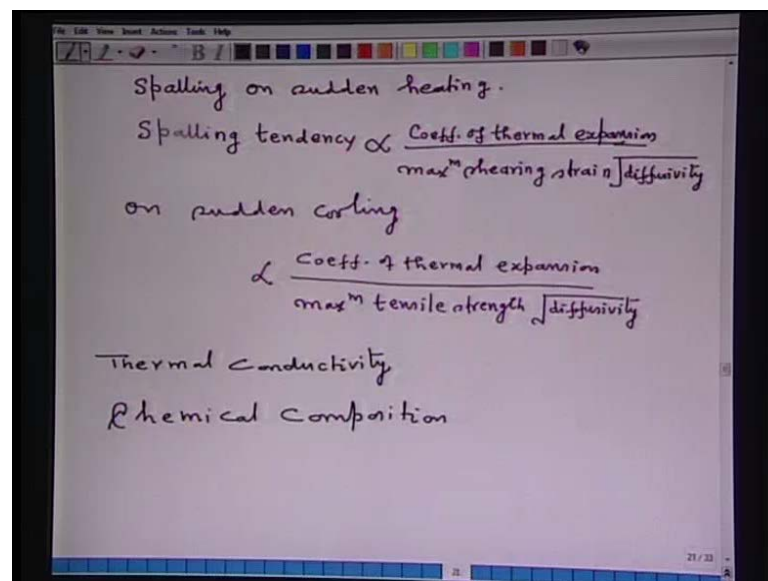 File Edit View Insert Actions Tools Help
B I
Spalling on sudden heating.
Spalling tendency ∝ Coeff. of thermal expansion
max^m shearing strain √diffusivity
on sudden cooling
∝ Coeff. of thermal expansion
max^m tensile strength √diffusivity
Thermal Conductivity
Chemical Composition
21/33
21